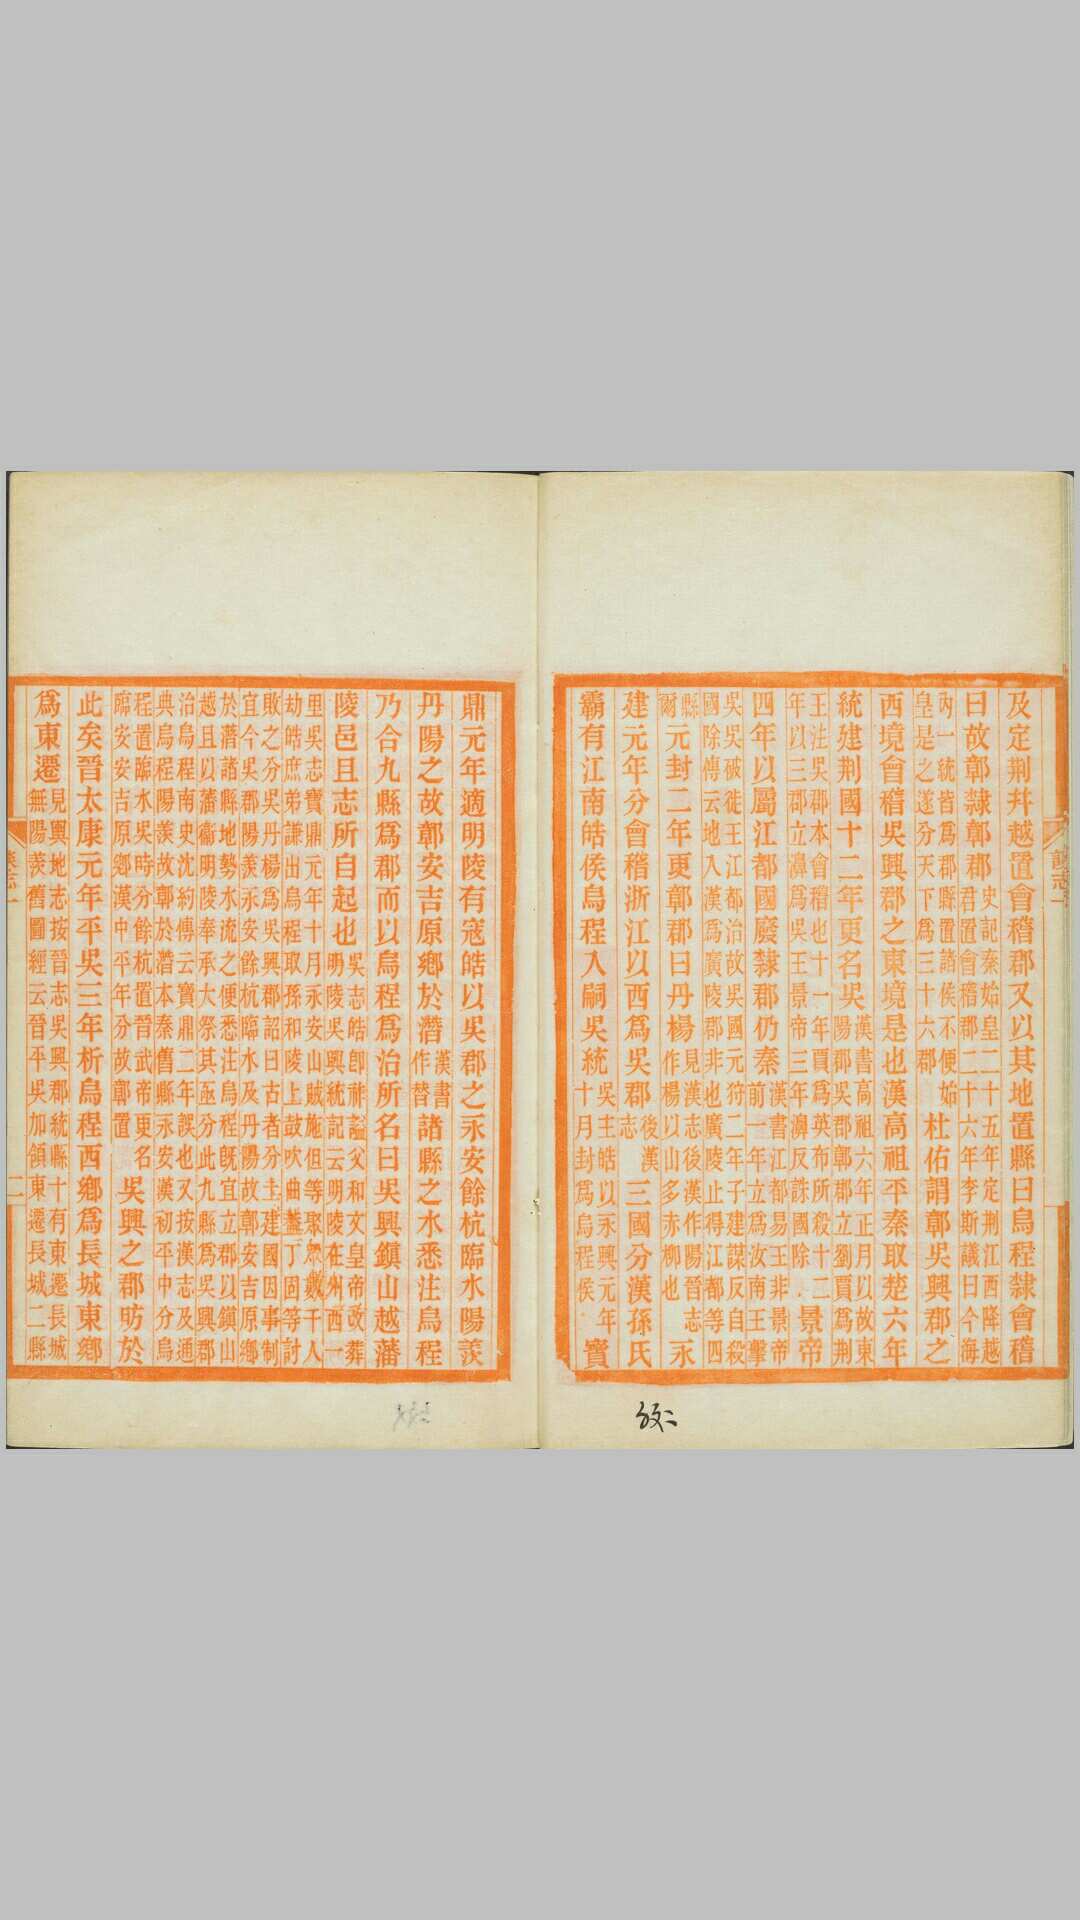 及定荆幷越置會稽郡又以其地置縣曰烏程隷會稽
曰故鄣隷鄣郡史記秦始皇二十五年定荆江西降越君置會稽郡二十六年李斯議曰今海
內一統皆爲郡縣置諸侯不便始皇是之遂分天下爲三十六郡杜佑謂鄣吳興郡之
西境會稽吳興郡之東境是也漢高祖平秦取楚六年
統建荆國十二年更名吳漢書高祖六年正月以故東陽郡吳郡鄣郡立劉賈爲荆
王注吳郡本會稽也十一年賈爲英布所殺十二年以三郡立濞爲吳王景帝三年濞反誅國除景帝
四年以屬江都國廢隷郡仍秦漢書江都易王非景帝前一年立爲汝南王擊
吳吳破徙王江都治故吳國元狩二年子建謀反自殺國除傳云地入漢爲廣陵郡非也廣陵止得江都等四
縣爾元封二年更鄣郡曰丹楊見漢志後漢作陽晉志作楊以山多赤柳也永
建元年分會稽浙江以西爲吳郡後漢志三國分漢孫氏
霸有江南皓侯烏程入嗣吳統吳主皓以永興元年十月封爲烏程侯寶
鼎元年適明陵有寇皓以吳郡之永安餘杭臨水陽羨
丹陽之故鄣安吉原鄉於潛漢書作朁諸縣之水悉注烏程
乃合九縣爲郡而以烏程爲治所名曰吳興鎭山越藩
陵邑且志所自起也吳志皓卽祚謚父和文皇帝改葬明陵吳興統記云明陵在州西一
里吳志寶鼎元年十月永安山賊施但等聚衆數千人劫皓庶弟謙出烏程取孫和陵上鼓吹曲蓋丁固等討
敗之分吳丹楊爲吳興郡詔曰古者分土建國因事制宜今吳郡陽羨永安餘杭臨水及丹陽故鄣安吉原鄉
於潛諸縣地勢水流之便悉注烏程旣宜立郡以鎭山越且以藩衞明陵奉承大祭其亟分此九縣爲吳興郡
治烏程南史沈約傳云寶鼎二年誤也又按漢志及通典烏程陽羨故鄣於潛本秦舊縣永安漢初平中分烏
程置臨水吳時分餘杭置晉武帝更名臨安安吉原鄉漢中平年分故鄣置吳興之郡昉於
此矣晉太康元年平吳三年析烏程西鄉爲長城東鄉
爲東遷見輿地志按晉志吳興郡統縣十有東遷長城無陽羨舊圖經云晉平吳加領東遷長城二縣
二